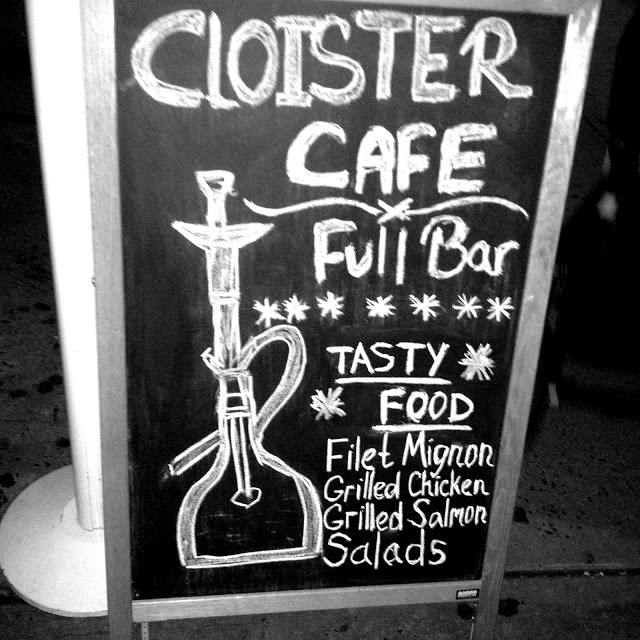 CLOISTER
CAFE
Full Bar
TASTY
FOOD
Filet Mignon
Grilled Chicken
Grilled Salmon
Salads